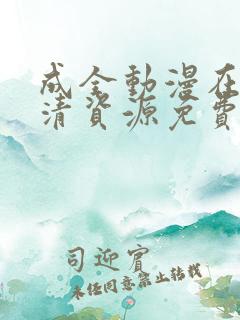 成全動漫在
清資源免費
司迎賓
未经同意禁止转载